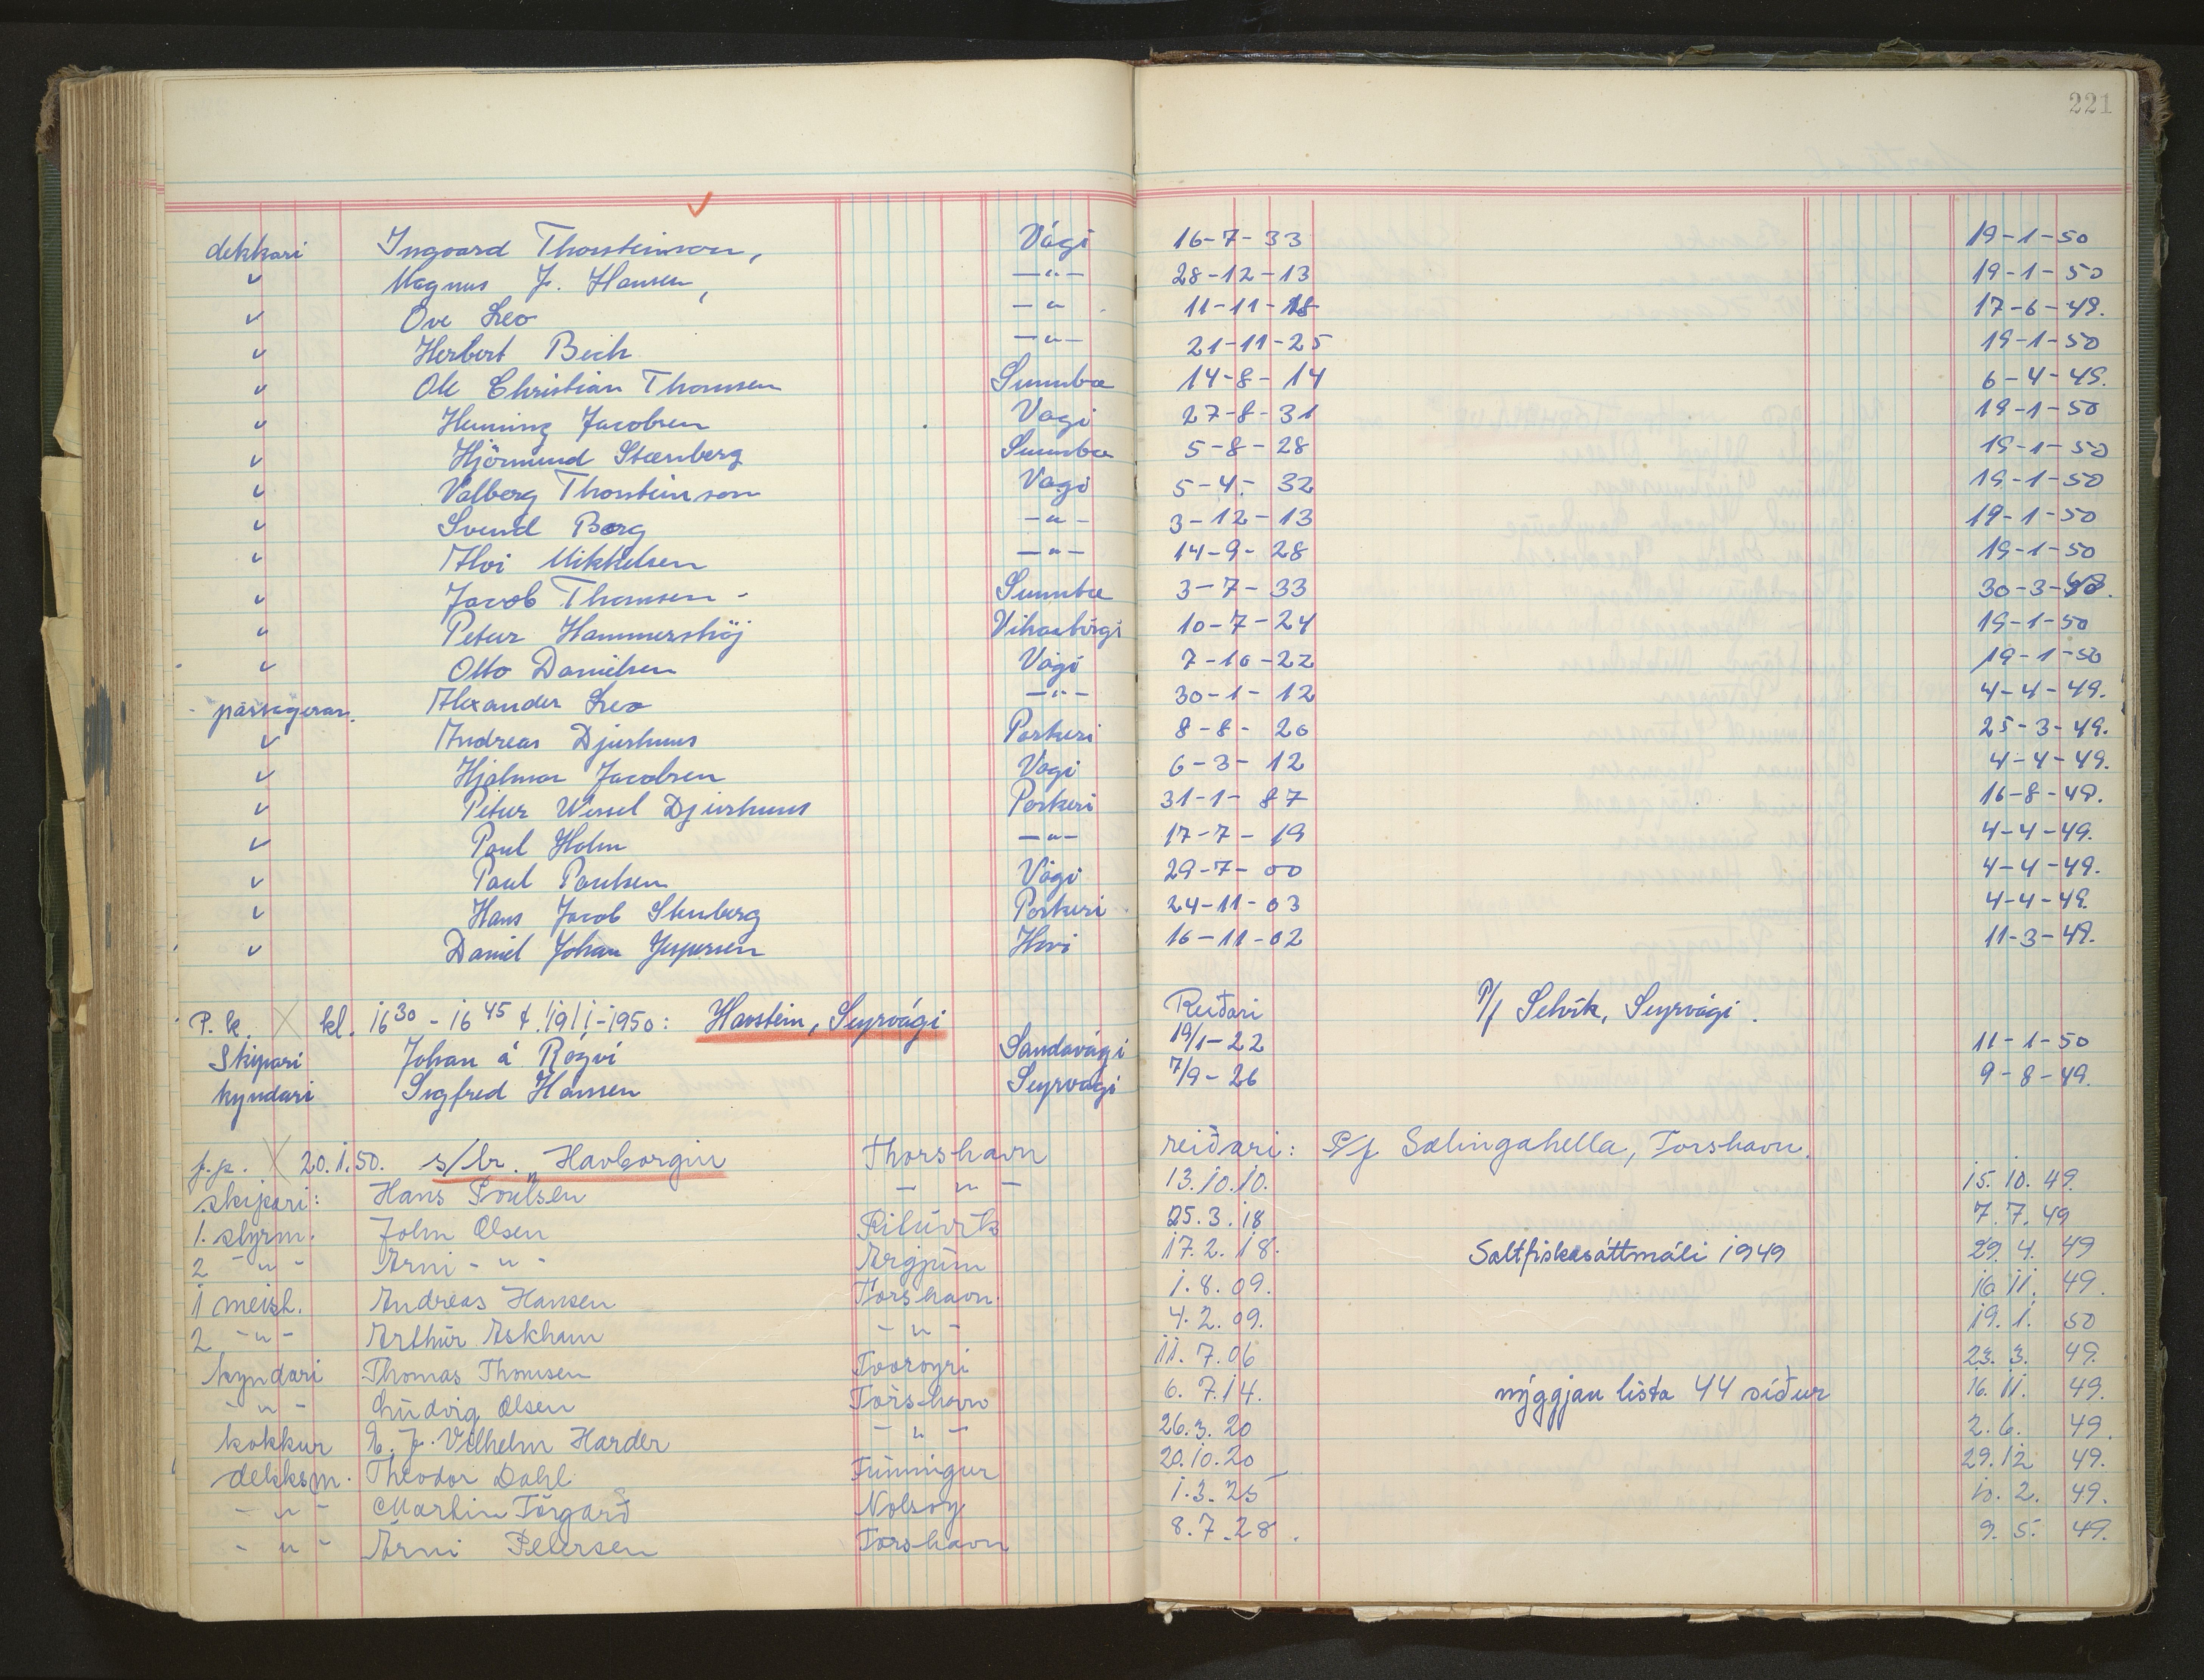 221
dekkari Ingvard Thorsteinsson, Vági 16-7-33 19-1-50
" Magnus J. Hansen, -"- 28-12-13 19-1-50
" Ove Leo -"- 11-11-18 17-6-49.
" Herbert Bech -"- 21-11-25 19-1-50
" Ole Christian Thomsen Sumba 14-8-14 6-4-49.
" Henning Jacobsen Vági 27-8-31 19-1-50
" Hjörmund Stenberg Sumba 5-8-28 19-1-50
" Valberg Thorsteinsson Vági 5-4-32 19-1-50
" Svend Borg -"- 3-12-13 19-1-50
" Alvi Mikkelsen -"- 14-9-28 19-1-50
" Jacob Thomsen - Sumba 3-7-33 30-3-
" Petur Hammershöj Vikarbirgi 10-7-24 19-1-50
" Otto Danielsen Vági 7-10-22 19-1-50
passagerar. Alexander Leo -"- 30-1-12 4-4-49.
" Andreas Djurhuus Porkeri 8-8-20 25-3-49.
" Hjalmar Jacobsen Vági 6-3-12 4-4-49.
" Petur Wessel Djurhuus Porkeri 31-1-87 16-8-49.
" Poul Holm -"- 17-7-19 4-4-49.
" Poul Poulsen Vági 29-7-00 4-4-49.
" Hans Jacob Stenberg Porkeri 24-11-03 4-4-49.
" Daniel Johan Jespersen Hovi 16-11-02 11-3-49.
P.k. X kl. 16 30 - 16 45 t. 19/1-1950: Havstein, Seyrvági Reiðari P/f Selvík, Seyrvági.
Skipari Johan á Rógvi Sandavági 19/1-22 11-1-50
kyndari Sigfred Hansen Seyrvági 7/9-26 9-8-49.
f.p. X 20.1.50. s/br. "Havborgin Thorshavn reiðari: P/f Salingahella, Torshavn.
skipari: Hans Poulsen - " - 13.10.10. 15.10.49.
1. styrm. John Olsen Rituvík 25.3.18 7.7.49
2 - " - Arni - " - Argjum 17.2.18. Saltfiskasáttmáli 1949 29.4.49
1 meist. Andreas Hansen Torshavn. 1.8.09. 16.11.49.
2 - " - Arthur Askham - " - 4.2.09. 19.1.50
kyndari Thomas Thomsen Tvøroyri 11.7.06 23.3.49.
- " - Ludvig Olsen Torshavn 6.7.14. nýggjan lista 44 síður 16.11.49.
kokkur E. J. Vilhelm Harder - " - 26.3.20 2.6.49.
dekksm. Theodor Dahl Funningur 20.10.20 29.12.49.
- " - Martin Tórgarð Nolsoy 1.3.25 10.2.49.
- " - Arni Petersen Torshavn 8.7.28. 9.5.49.